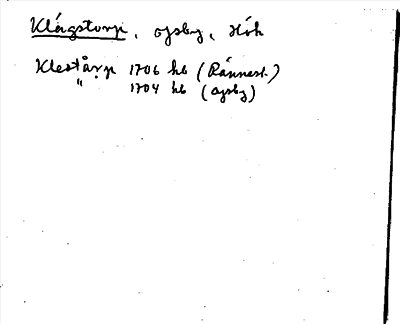 Klågstorp, ofsby, Hök
Klestårp 1706 hb (Rännesl.)
" 1704 hb (ofsby)